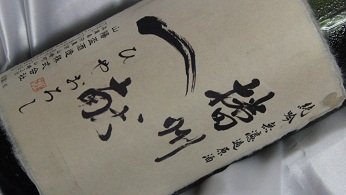 純吟 無濾過原酒
播州
一献
ひやおろし
山陽盃酒造株式会社